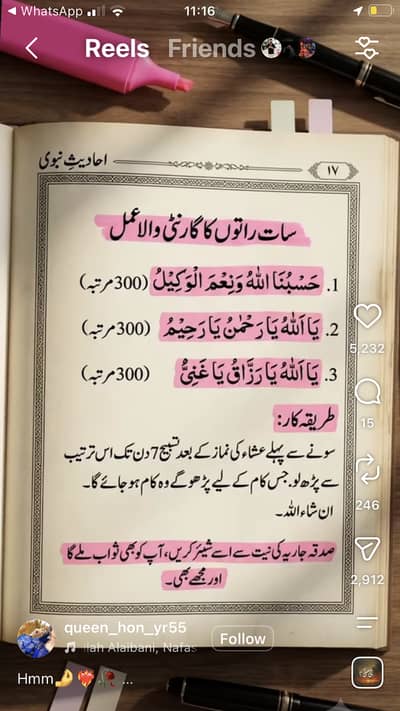 WhatsApp
11:16
Reels Friends
احادیثِ نبوی
۱۷
سات راتوں کا گارنٹی والا عمل
1. حَسْبُنَا اللهُ وَنِعْمَ الْوَكِيْلُ (300 مرتبہ)
2. يَا اَللهُ يَا رَحْمٰنُ يَا رَحِيْمُ (300 مرتبہ)
3. يَا اَللهُ يَا رَزَّاقُ يَا غَنِيُّ (300 مرتبہ)
طریقہ کار:
سونے سے پہلے عشاء کی نماز کے بعد تسبیح 7 دن تک اس ترتیب
سے پڑھ لو. جس کام کے لیے پڑھو گے وہ کام ہو جائے گا۔
ان شاء اللہ۔
صدقہ جاریہ کی نیت سے اسے شیئر کریں، آپ کو بھی ثواب ملے گا
اور مجھے بھی۔
5,232
15
246
2,912
queen_hon_yr55
Follow
llah Alaibani, Nafas
Hmm🤌❤️‍🔥🥀 ...